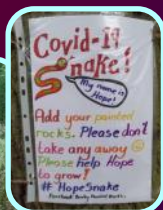 Covid-19
Snake!
My name is
Hope!
Add your painted
rocks. Please don't
take any away ☹
Please help Hope
to grow!
# HopeSnake